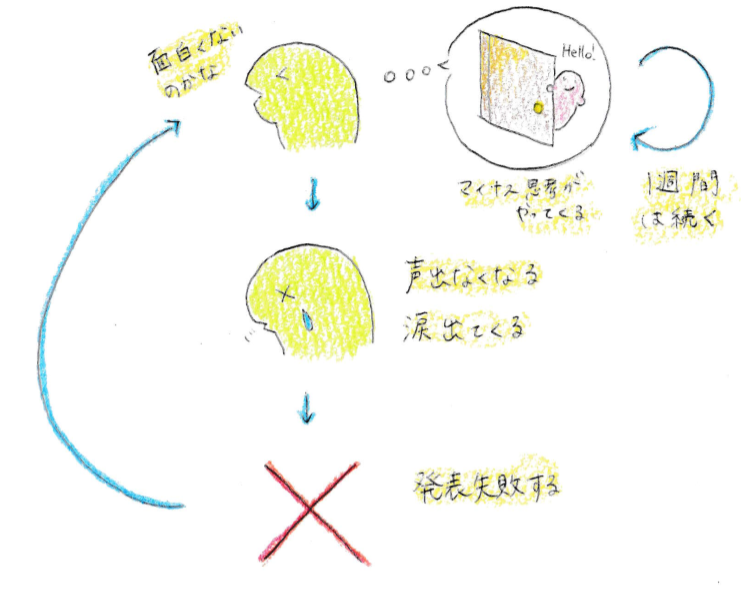 面白くない
のかな
Hello!
マイナス思考が
やってくる
1週間
は続く
声出なくなる
涙出てくる
発表失敗する